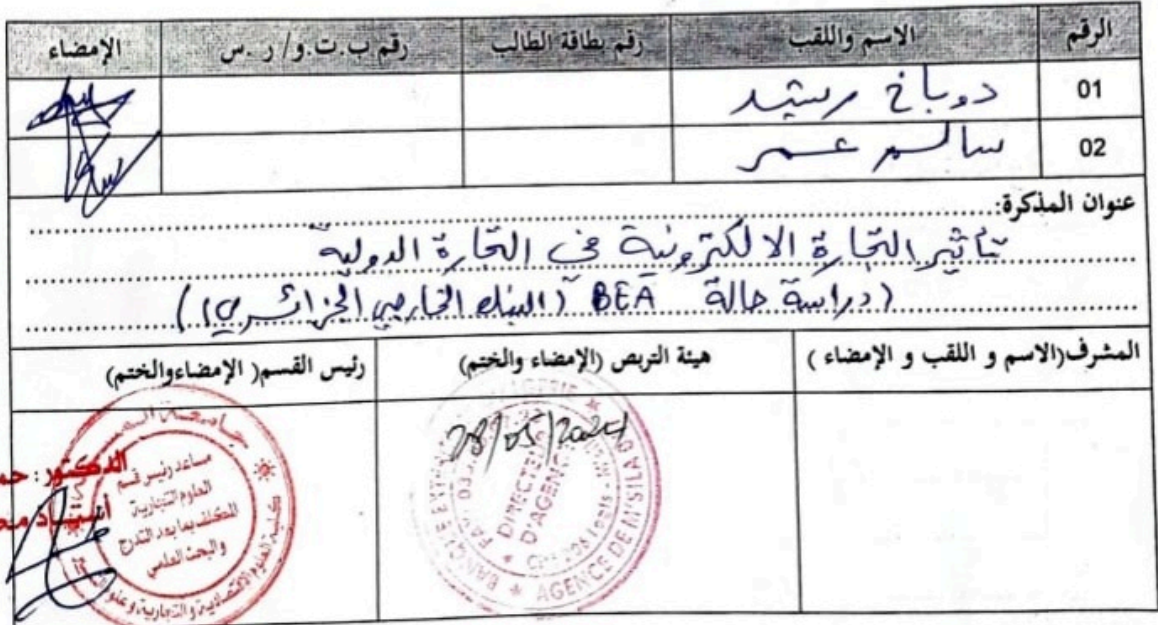 الرقم الاسم واللقب رقم بطاقة الطالب رقم ب.ت.و/ ر.س الإمضاء
01 دوباخ رشيد
02 سالم عمر
عنوان المذكرة:
تأثير التجارة الالكترونية في التجارة الدولية
(دراسة حالة BEA (البنك الخارجي الجزائري))
المشرف(الاسم و اللقب و الإمضاء ) هيئة التربص (الإمضاء والختم) رئيس القسم( الإمضاءوالختم)
28/05/2024
DIRECTEUR
D'AGENCE
AGENCE DE M'SILA
الدكتور: حم
مساعد رئيس قسم
العلوم التجارية
المكلف بما بعد التدرج
والبحث العلمي